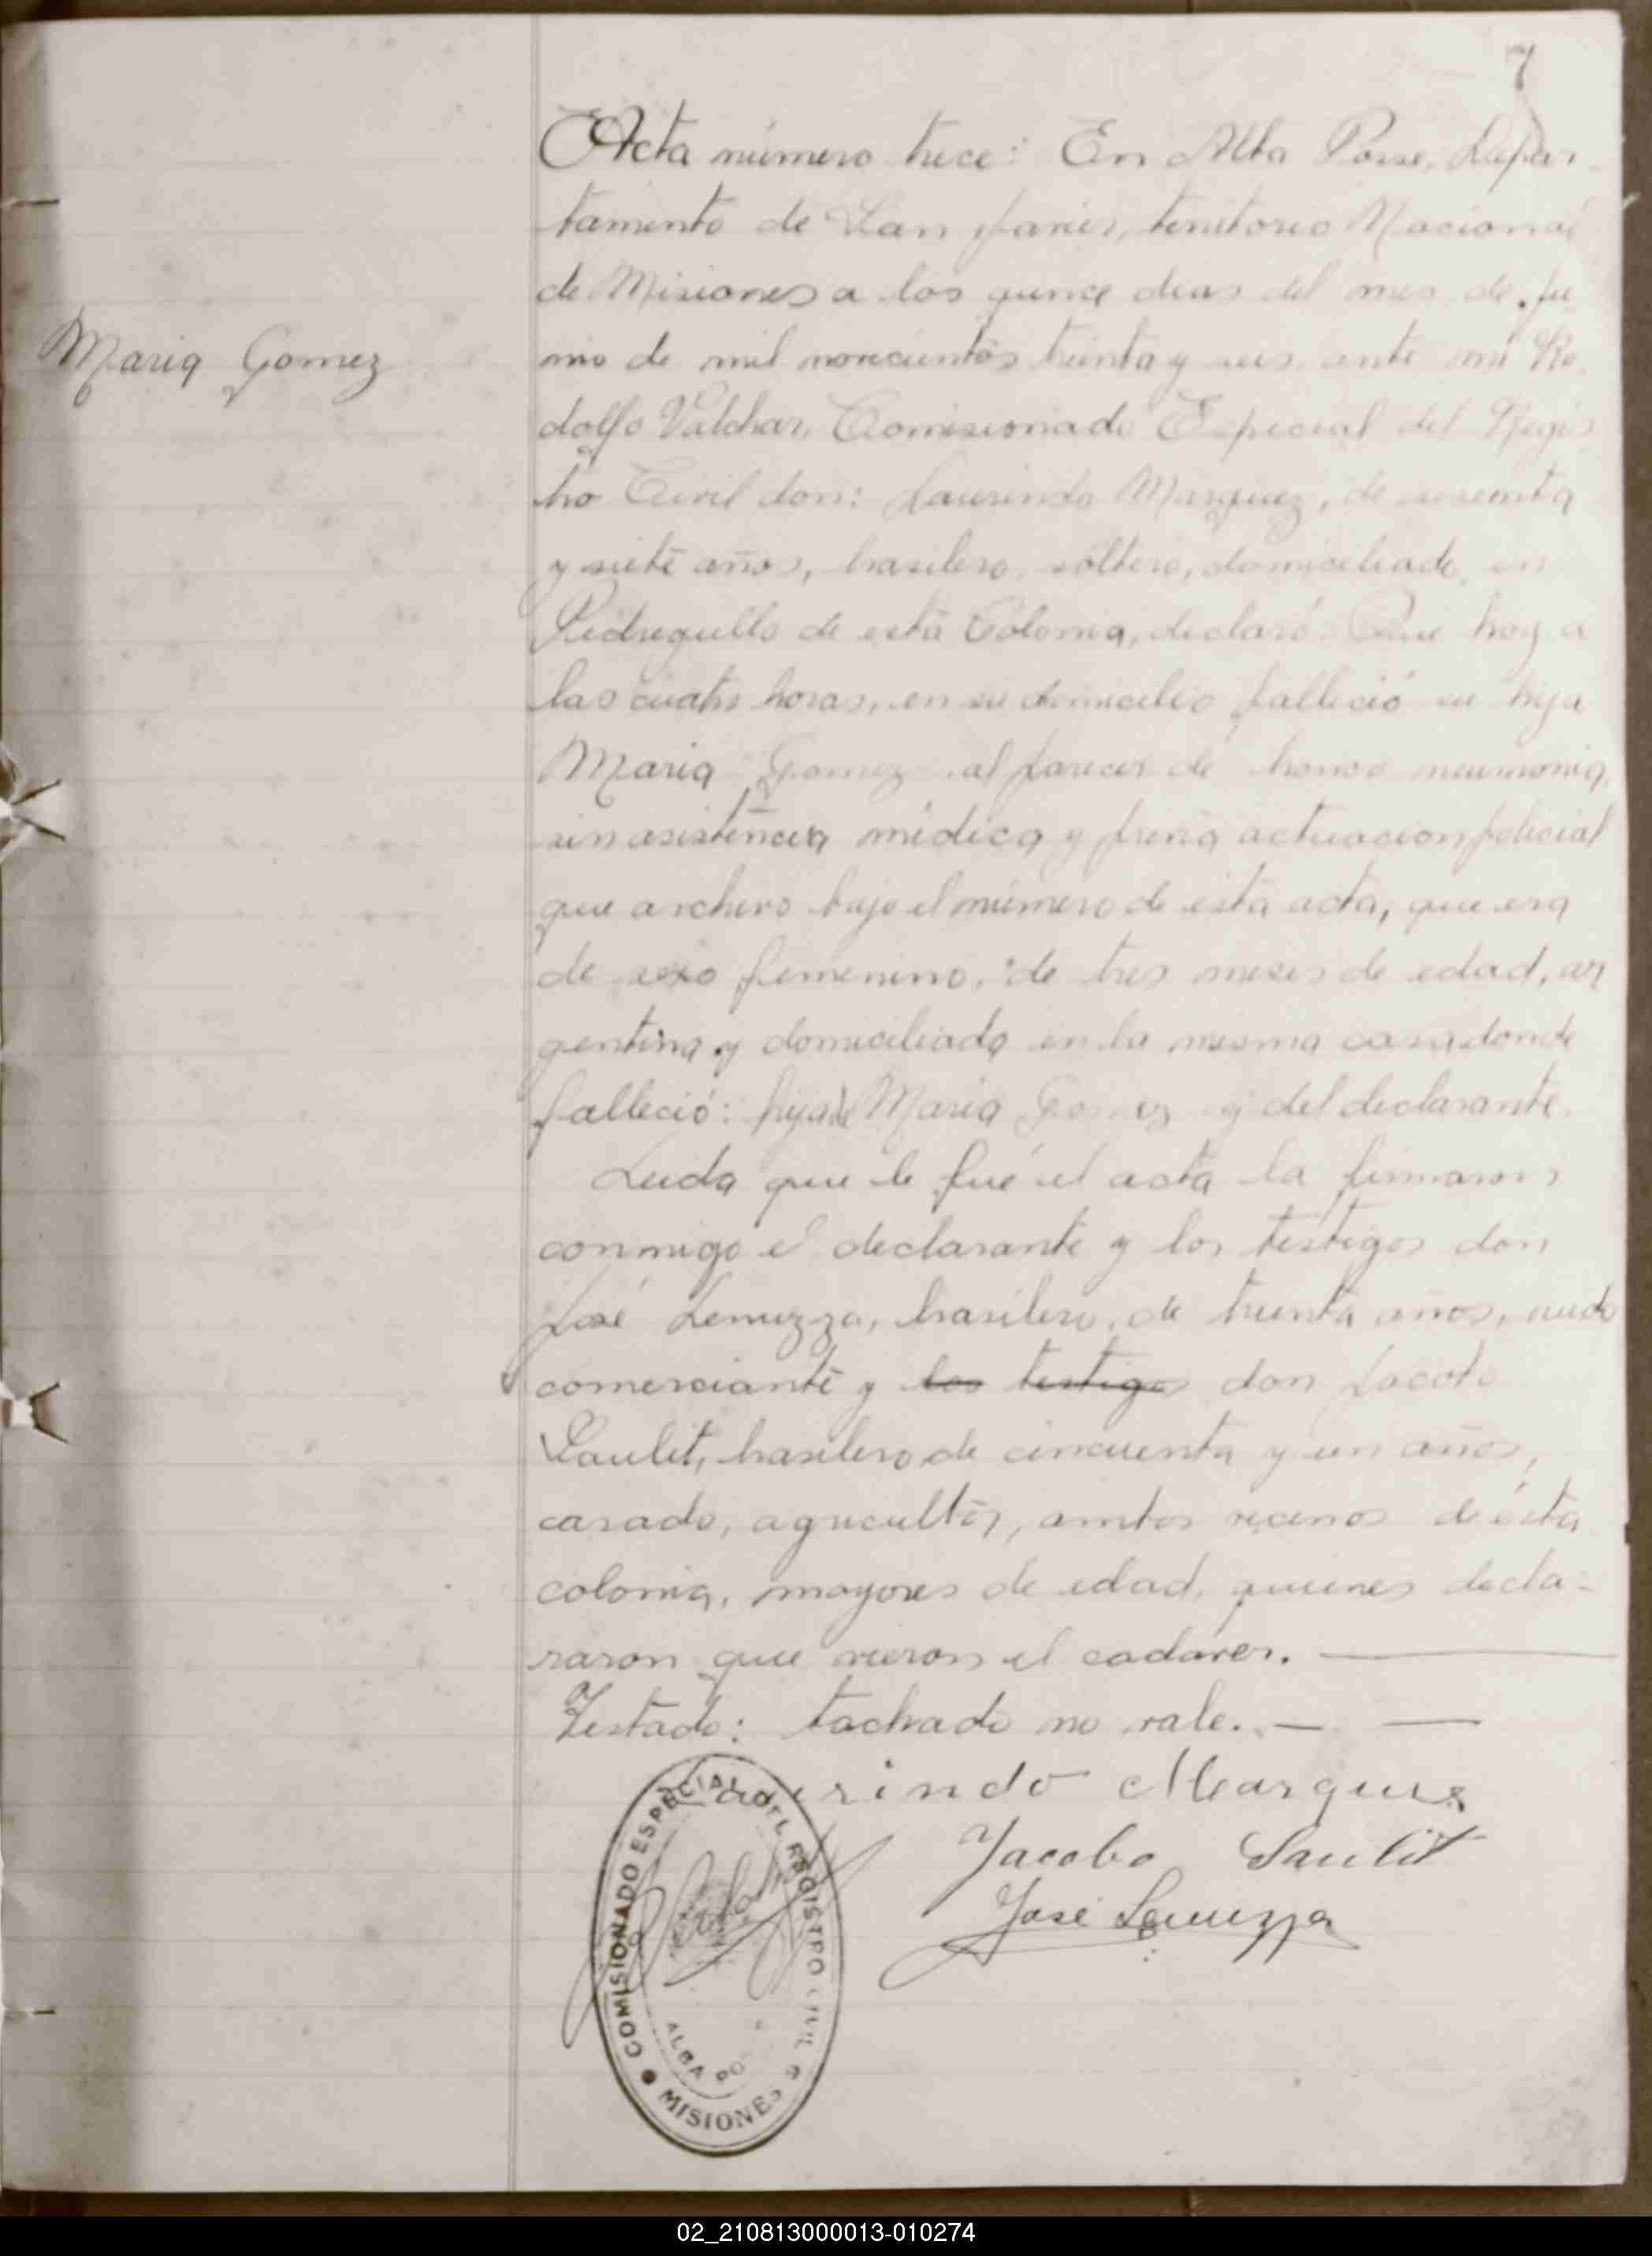 7
Acta número trece: En Alba Posse, Depar-
tamento de San Javier, territorio Nacional
de Misiones a los quince dias del mes de Ju-
nio de mil novecientos treinta y seis, ante mi Ro-
dolfo Valchar, Comisionado Especial del Regis-
tro Civil don: Laurindo Marquez, de sesenta
y siete años, brasilero, soltero, domiciliado en
Pedregullo de esta Colonia, declaró: Que hoy a
las cuatro horas, en su domicilio falleció su hija
Maria Gomez al parecer de bronco neumonia,
sin asistencia médica y previa actuacion policial
que archivo bajo el número de esta acta, que era
de sexo femenino, de tres meses de edad, ar
gentina y domiciliada en la misma casa donde
falleció: hija de Maria Gomez y del declarante.
Leida que le fué el acta la firmaron
conmigo el declarante y los testigos don
José Lemuzza, brasilero, de treinta años, viudo
comerciante y los testigos don Jacobo
Saulit, brasilero de cincuenta y un años,
casado, agricultor, ambos vecinos de ésta
colonia, mayores de edad, quienes decla-
raron que vieron el cadáver.
Testado: tachado no vale.
Maria Gomez
Laurindo Marques
Jacobo Saulit
José Lemuzza
COMISIONADO ESPECIAL DEL REGISTRO CIVIL
ALBA PO
MISIONES
02_210813000013-010274